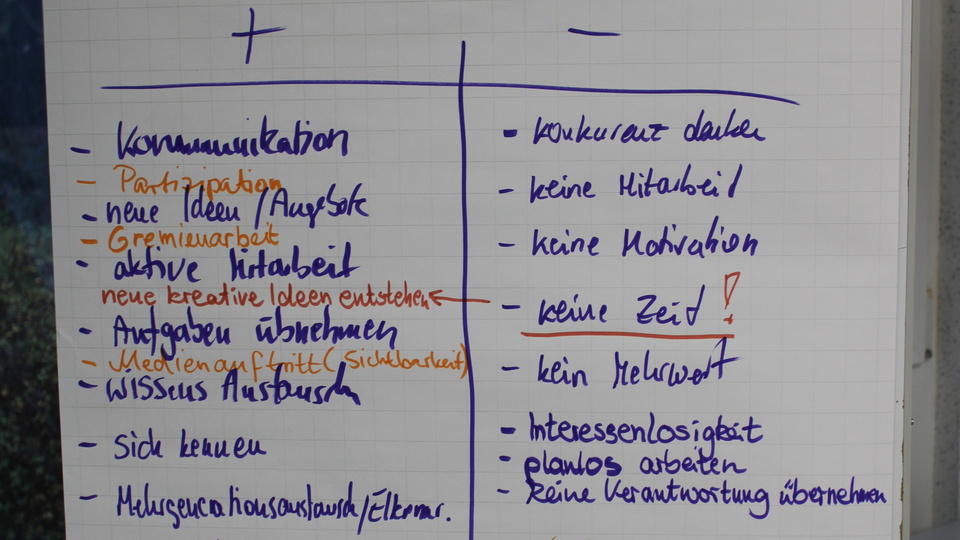 +
- Kommunikation
- Partizipation
- neue Ideen / Angebote
- Gremienarbeit
- aktive Mitarbeit
neue kreative Ideen entstehen
- Aufgaben übnehmen
- Medienauftritt (Sichtbarkeit)
- Wissens Austausch
- Sich kennen
- Mehrgenerationsaustausch/
-
- Konkurenz denken
- keine Mitarbeit
- keine Motivation
- keine Zeid!
- kein Mehrwert
- Interessenlosigkeit
- planlos arbeiten
- keine Verantwortung übernehmen